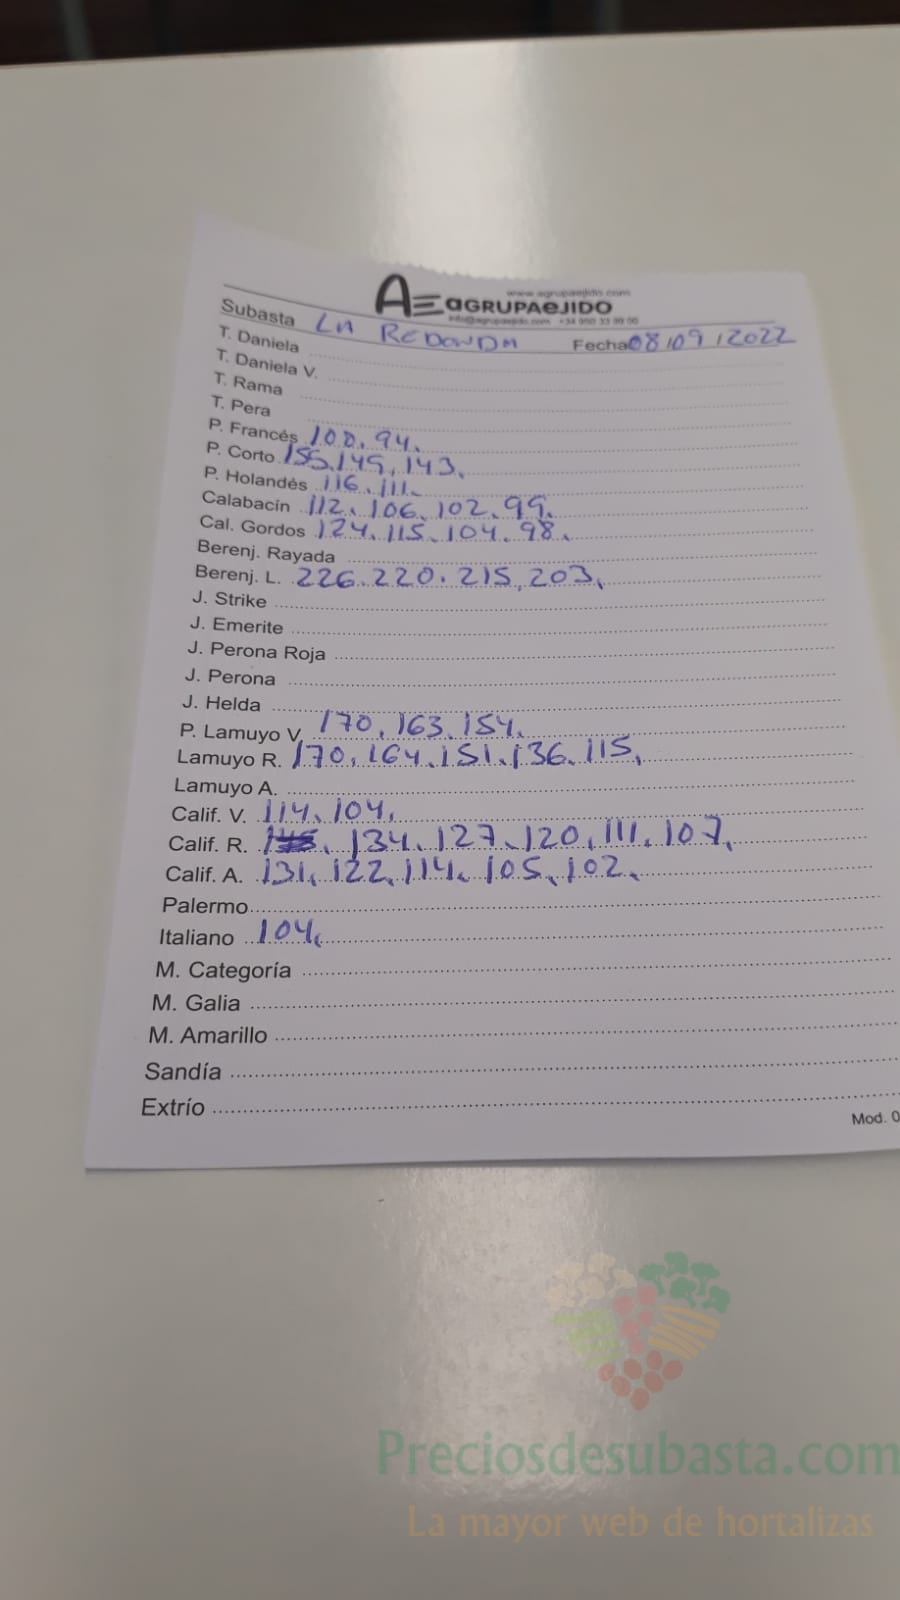 www.agrupaejido.com
AE aGRUPAeJIDO
info@agrupaejido.com +34 950 33 99 00
Subasta LA REDONDA Fecha 08/09/2022
T. Daniela
T. Daniela V.
T. Rama
T. Pera
P. Francés 100. 94.
P. Corto 155. 149. 143.
P. Holandés 116. 111.
Calabacín 112. 106. 102. 99.
Cal. Gordos 124. 115. 104. 98.
Berenj. Rayada
Berenj. L. 226. 220. 215. 203.
J. Strike
J. Emerite
J. Perona Roja
J. Perona
J. Helda
P. Lamuyo V. 170. 163. 154.
Lamuyo R. 170. 164. 151. 136. 115.
Lamuyo A.
Calif. V. 114. 104.
Calif. R. 134. 127. 120. 111. 107.
Calif. A. 131. 122. 114. 105. 102.
Palermo
Italiano 104.
M. Categoría
M. Galia
M. Amarillo
Sandía
Extrío
Mod. 0
Preciosdesubasta.com
La mayor web de hortalizas